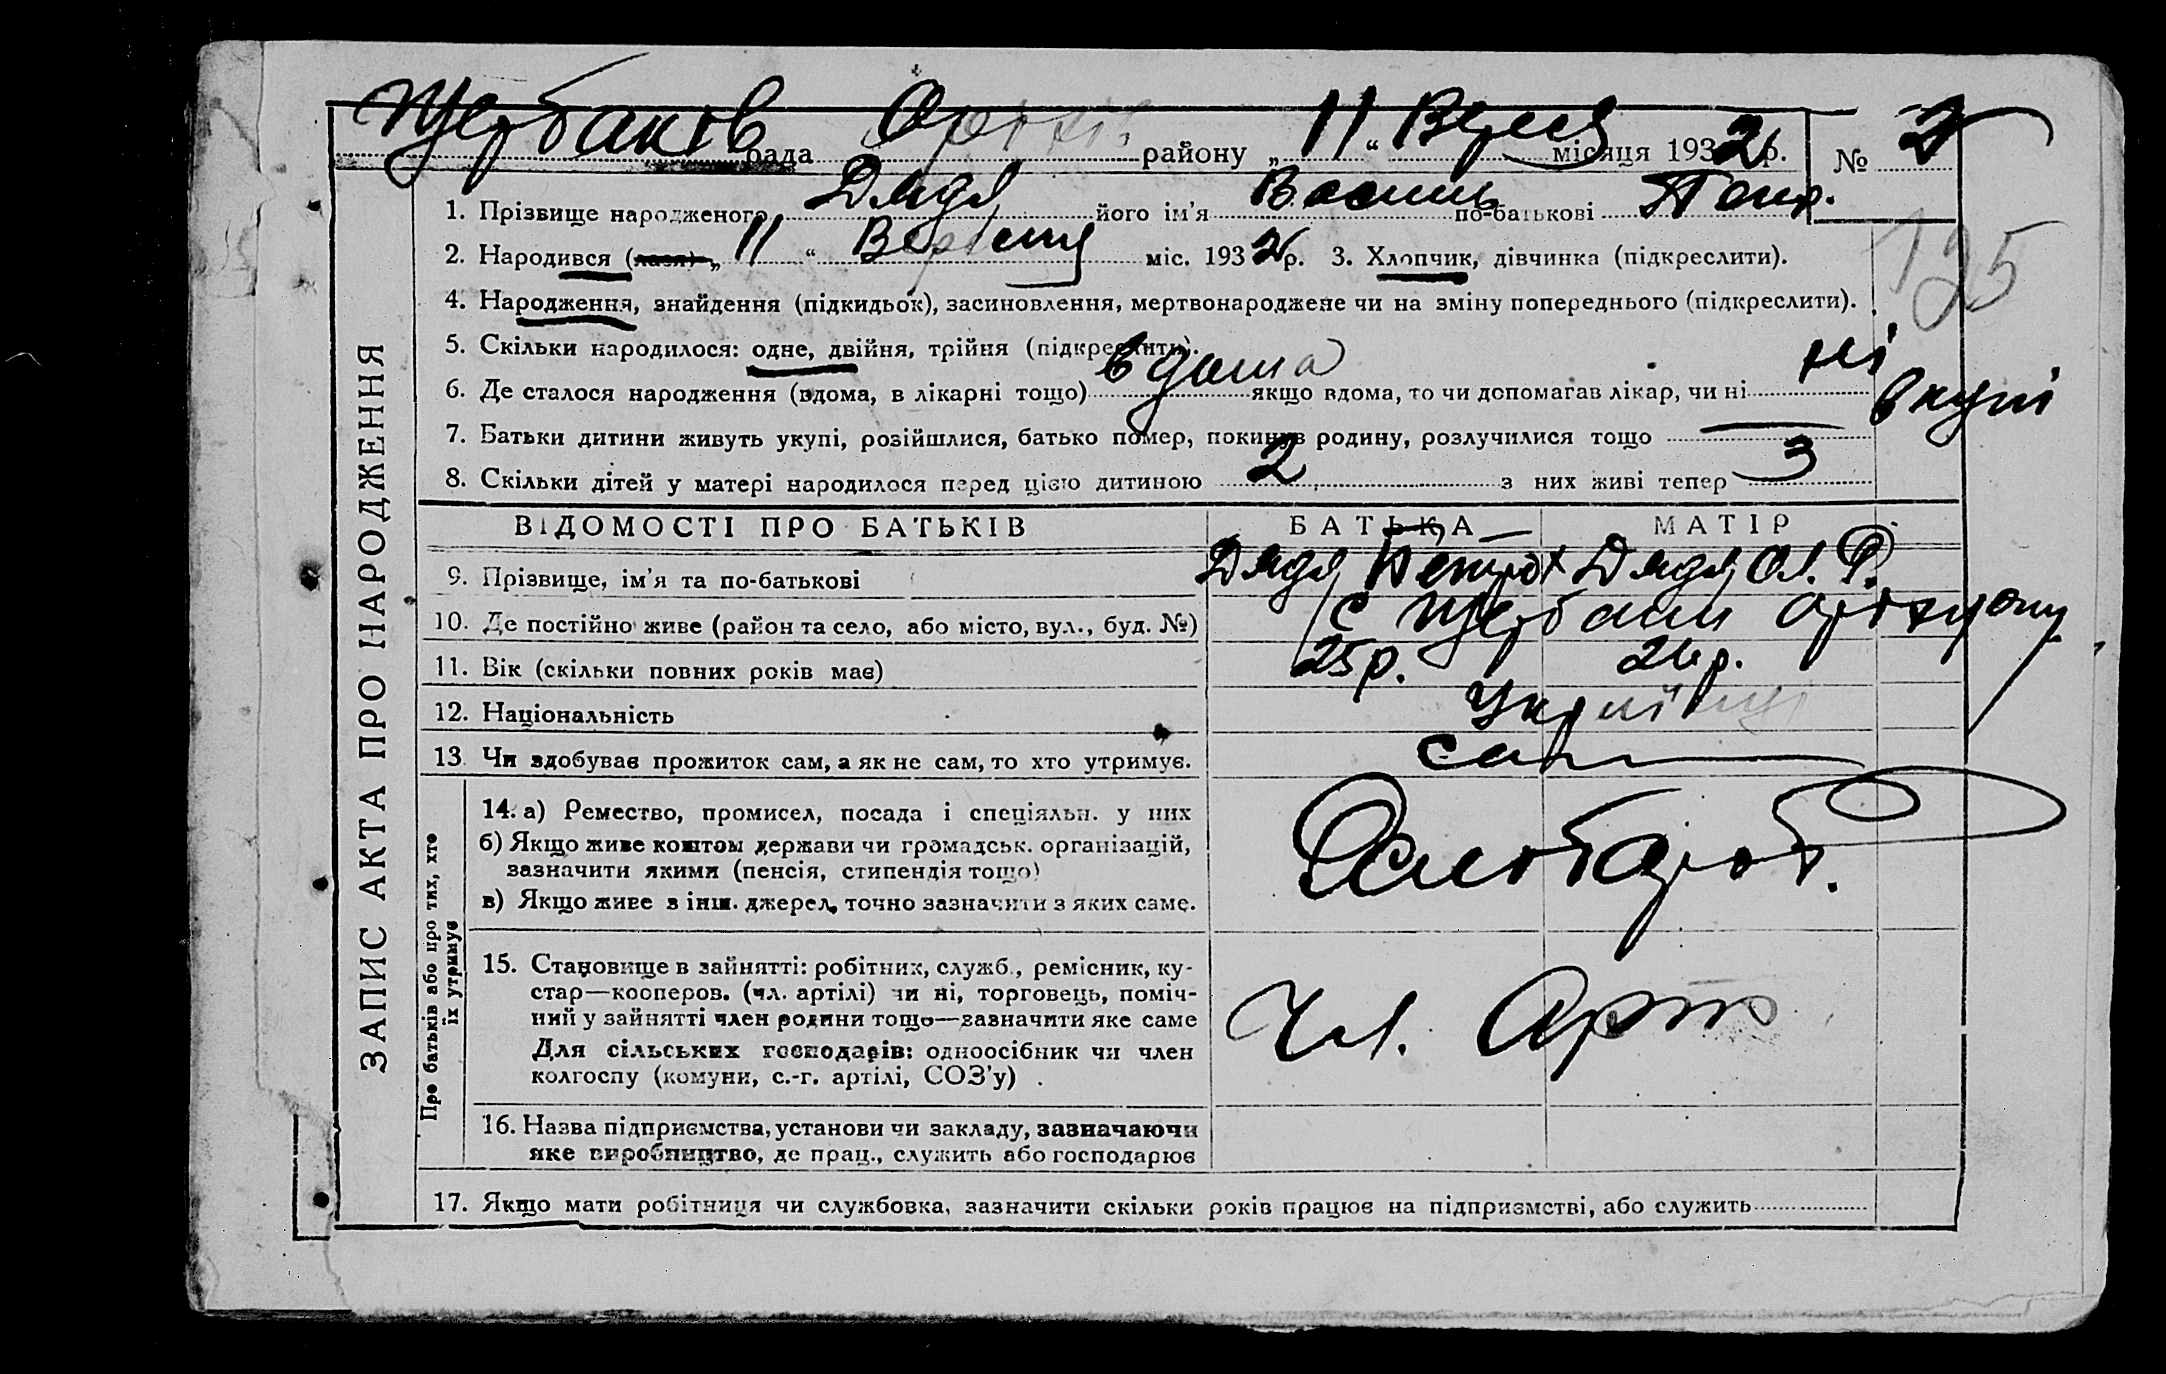 Щербаків рада Оріхів району „ 11 “ Вересня місяця 1932 р. № 2
1. Прізвище народженого Дядя його ім’я Василь по-батькові Петр.
125
2. Народився (лася) „ 11 “ Вересня міс. 1932 р. 3. Хлопчик, дівчинка (підкреслити).
4. Народження, знайдення (підкидьок), засиновлення, мертвонароджене чи на зміну попереднього (підкреслити).
5. Скільки народилося: одне, двійня, трійня (підкреслити).
6. Де сталося народження (вдома, в лікарні тощо) вдома якщо вдома, то чи допомагав лікар, чи ні ні
7. Батьки дитини живуть укупі, розійшлися, батько помер, покинув родину, розлучилися тощо вкупі
8. Скільки дітей у матері народилося перед цією дитиною 2 з них живі тепер 3
ЗАПИС АКТА ПРО НАРОДЖЕННЯ
ВІДОМОСТІ ПРО БАТЬКІВ БАТЬКА МАТІР
9. Прізвище, ім’я та по-батькові Дядя Петро Дядя Ол. Р.
10. Де постійно живе (район та село, або місто, вул., буд. №) с Щербаки
11. Вік (скільки повних років має) 25р. 24р.
12. Національність Українці
13. Чи здобуває прожиток сам, а як не сам, то хто утримує. сам
Про батьків або про тих, хто їх утримує
14. а) Ремество, промисел, посада і спеціяльн. у них
б) Якщо живе коштом держави чи громадськ. організацій,
зазначити якими (пенсія, стипендія тощо)
в) Якщо живе з інш. джерел, точно зазначити з яких саме.
15. Становище в зайнятті: робітник, служб., ремісник, ку-
стар—косперов. (чл. артілі) чи ні, торговець, поміч-
ний у зайнятті член родини тощо—зазначити яке саме
Чл. Арт
Для сільських господарів: одноосібник чи член
колгоспу (комуни, с.-г. артілі, СОЗ’у) .
16. Назва підприємства, установи чи закладу, зазначаючи
яке виробництво, де прац., служить або господарює
17. Якщо мати робітниця чи службовка, зазначити скільки років працює на підприємстві, або служить